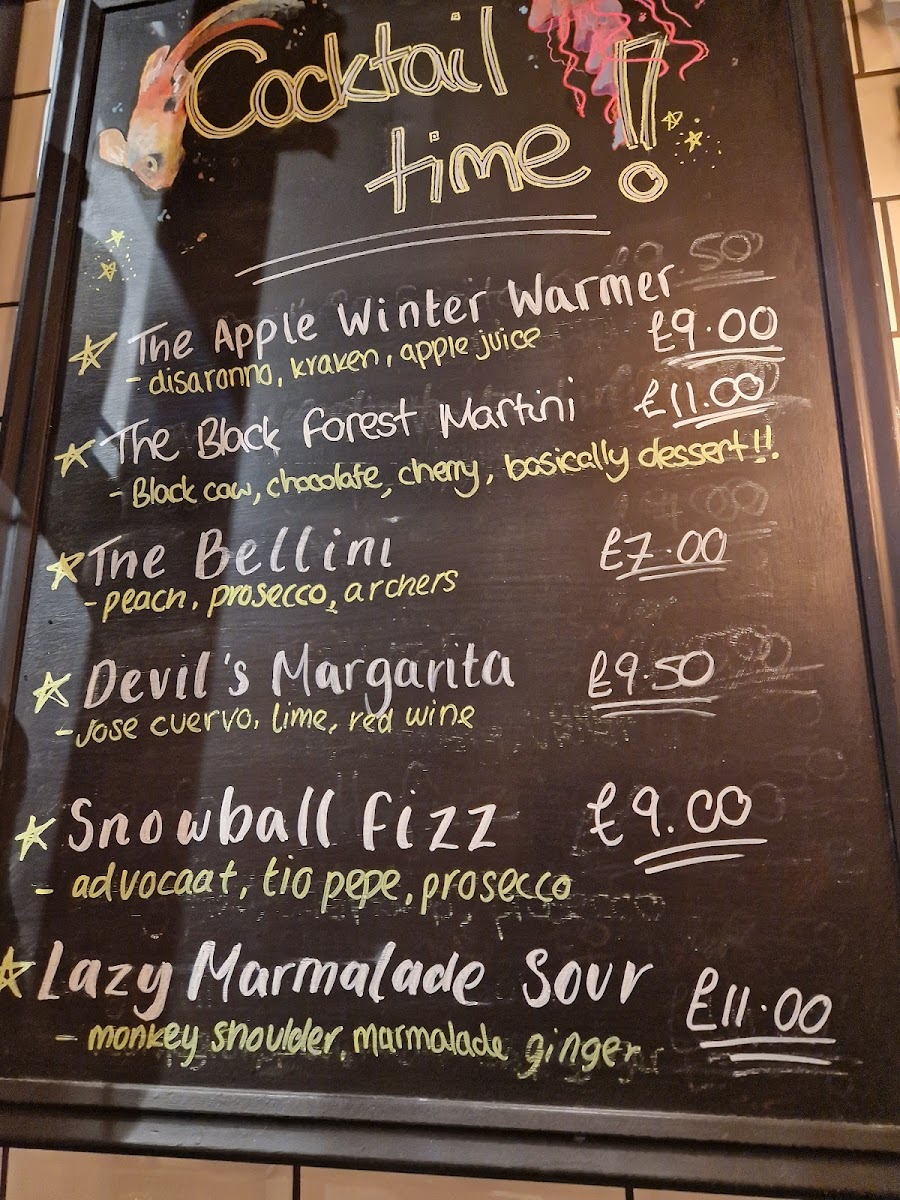 Cocktail
time!
The Apple Winter Warmer
£9.00
- disaronno, kraken, apple juice
The Black Forest Martini £11.00
- Black cow, chocolate, cherry, basically dessert!!
The Bellini £7.00
- peach, prosecco, archers
Devil's Margarita £9.50
- Jose cuervo, lime, red wine
Snowball Fizz £9.00
- advocaat, tio pepe, prosecco
Lazy Marmalade Sour £11.00
- monkey shoulder, marmalade ginger